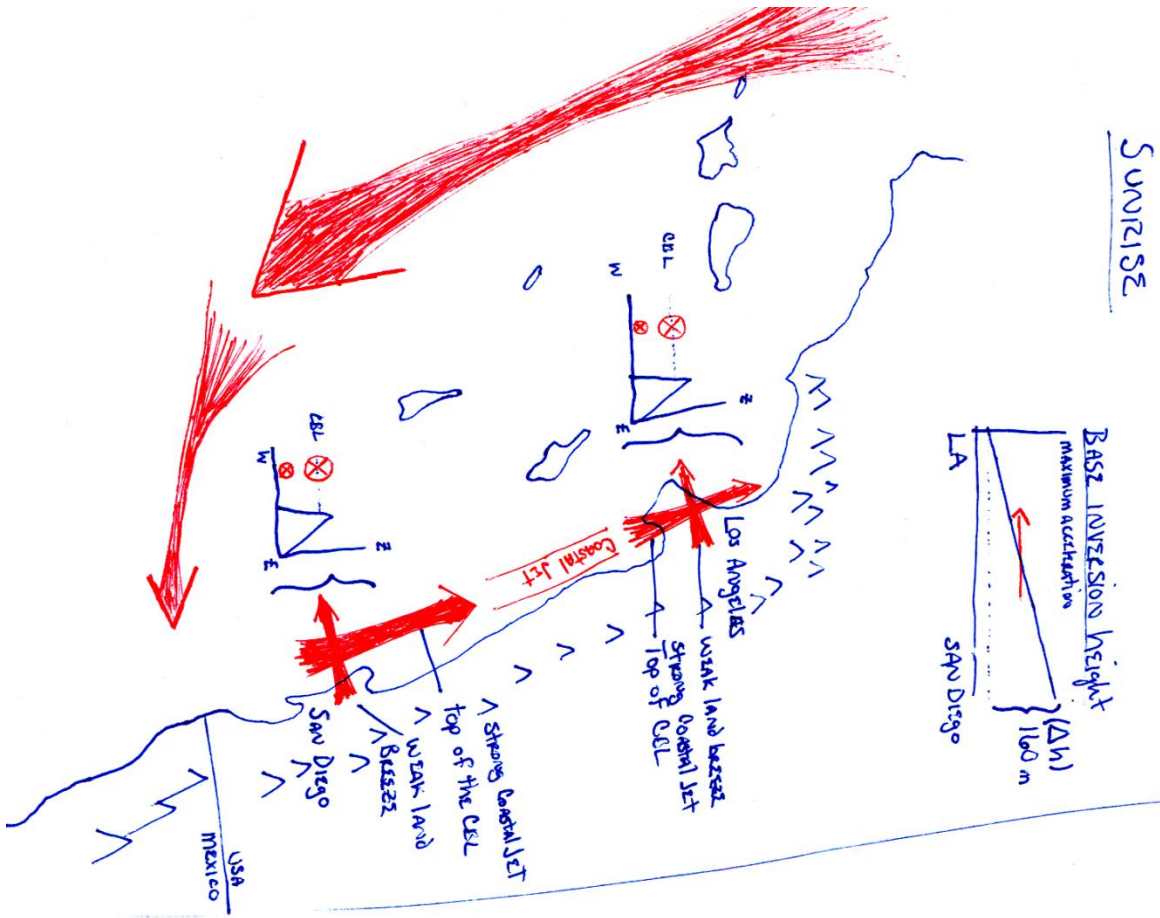 SUNRISE
BASE INVERSION height
maximum acceleration
(Δh)
160 m
LA
SAN DIEGO
CBL
W
Z
E
Los Angeles
weak land breeze
strong coastal Jet
Top of CBL
Coastal Jet
CBL
W
Z
E
strong Coastal Jet
top of the CBL
weak land
Breeze
San Diego
USA
Mexico